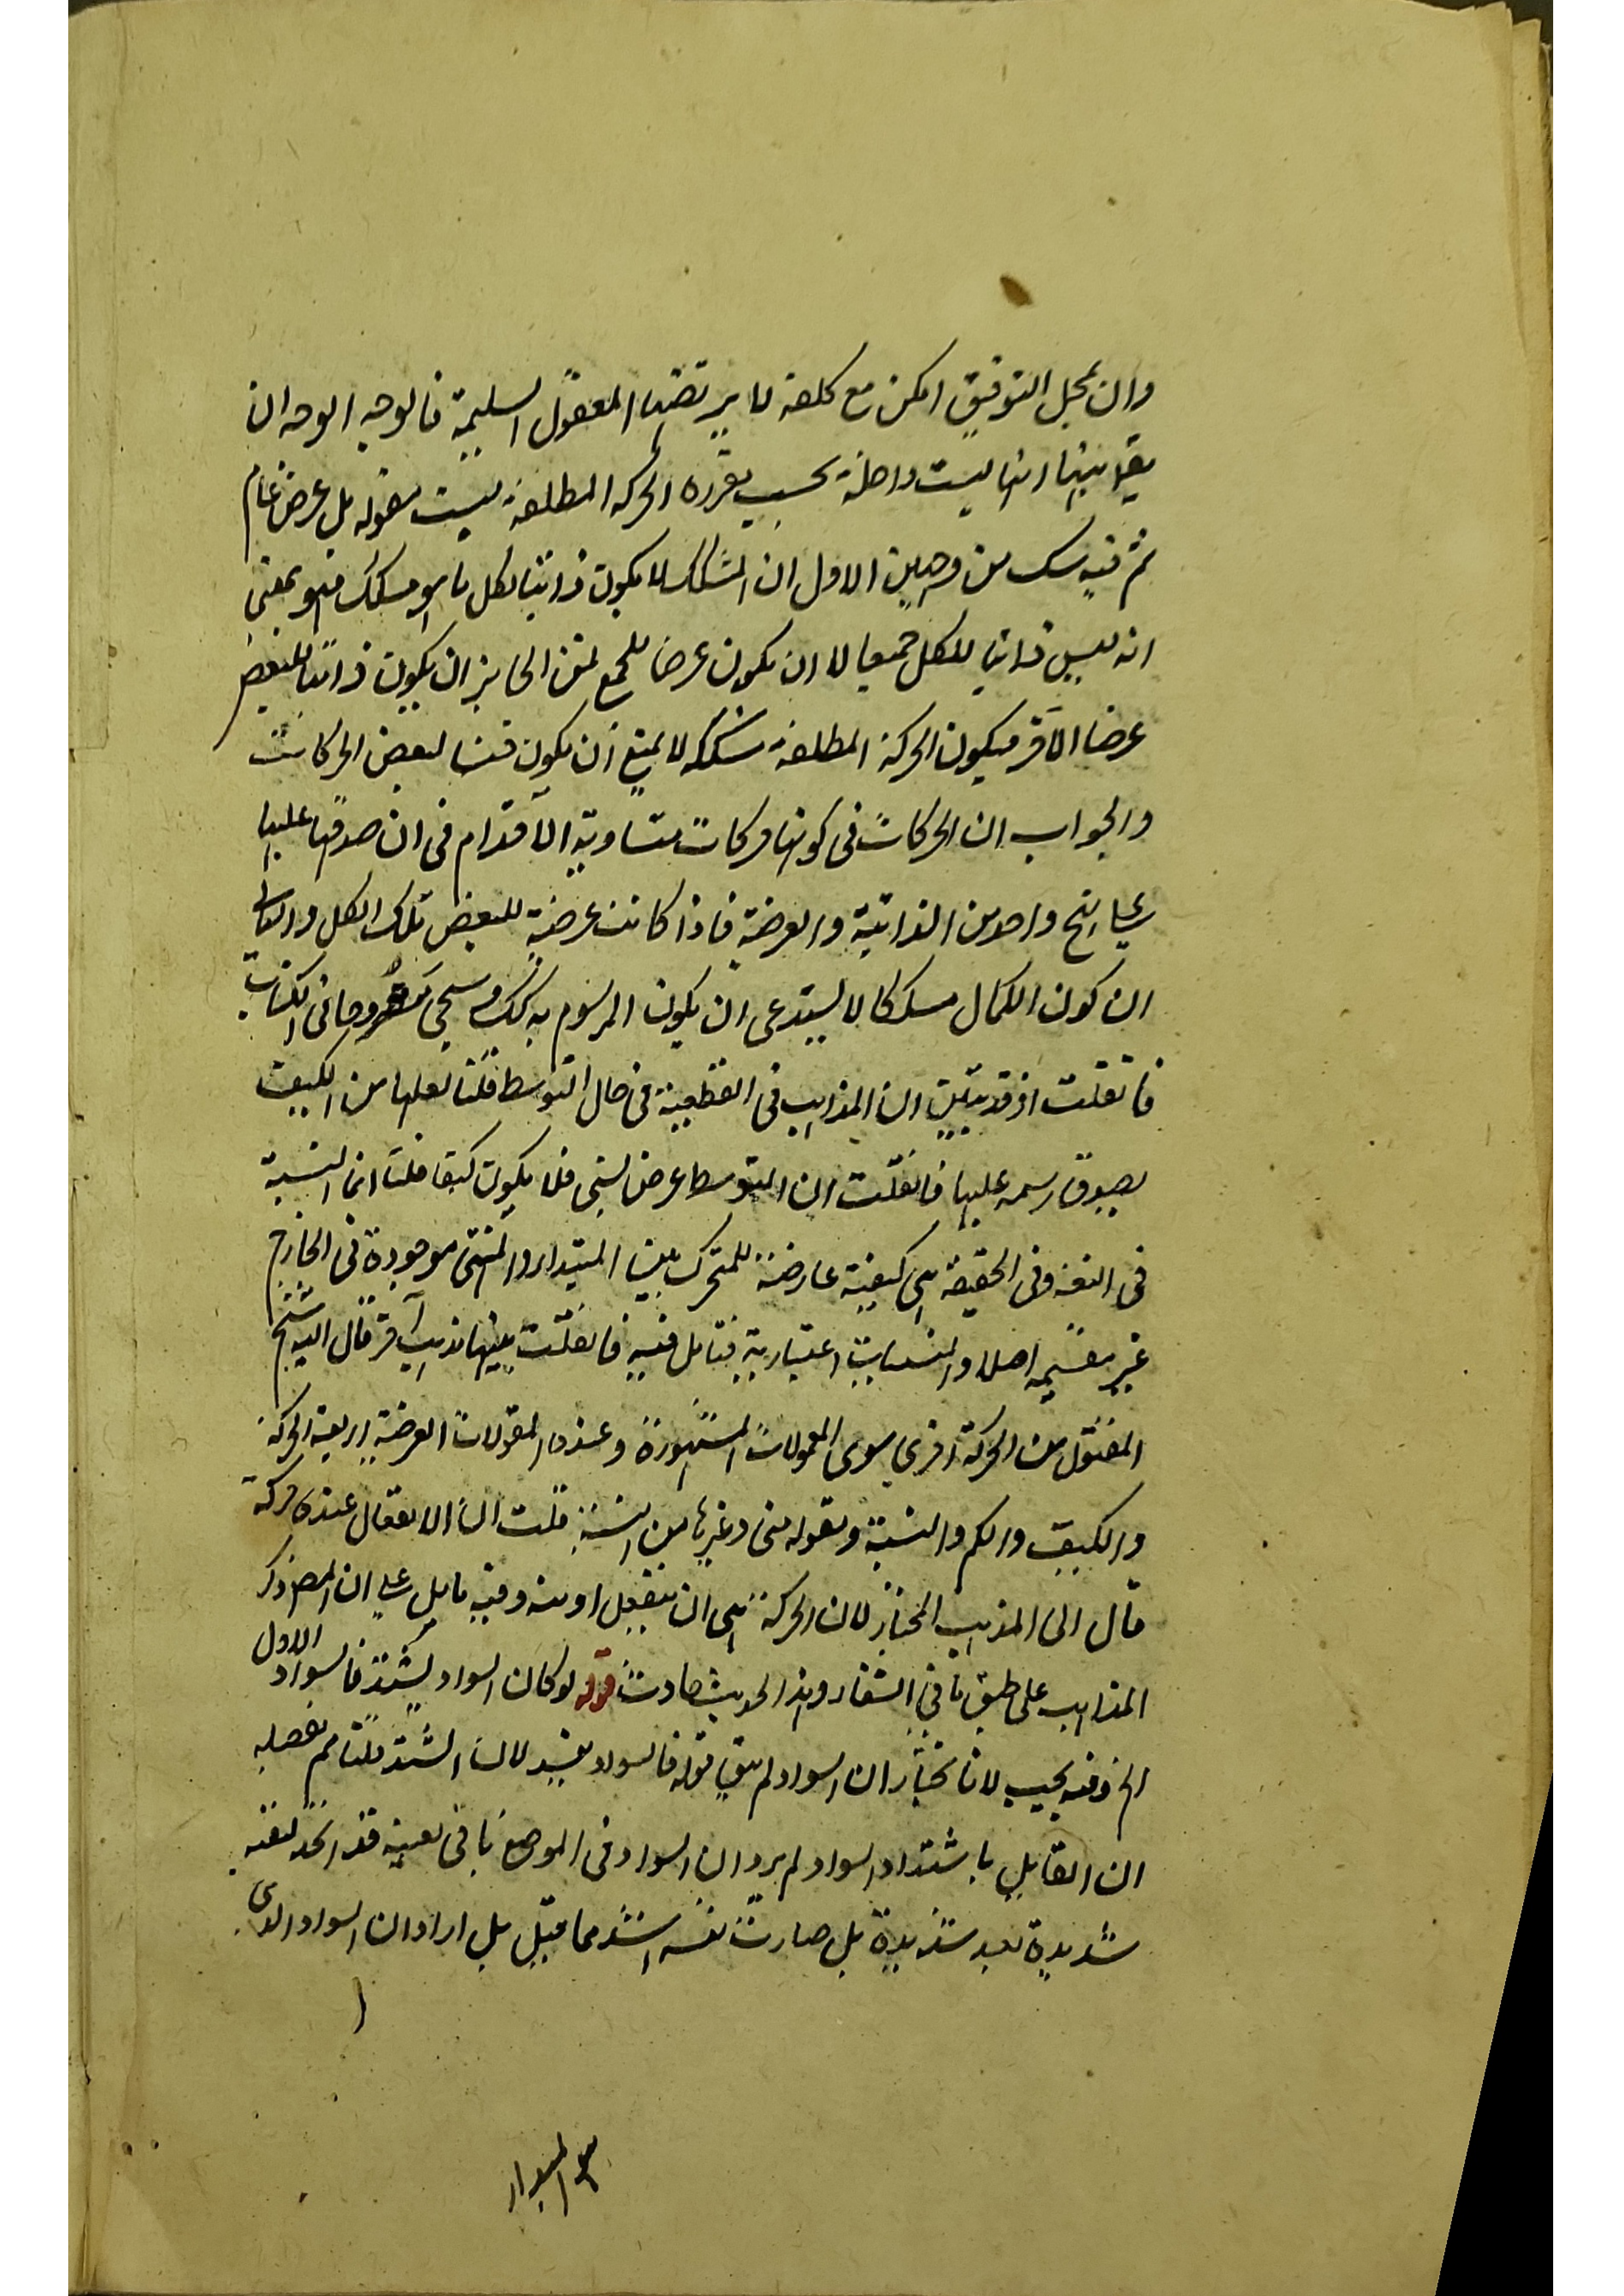 وان يحل التوفيق امكن مع كلفة لا يرتضيها العقول السليمة فالوجه الوجه ان
يق بينها انها ليست داخلة بحسب تقرره الحركة المطلقة ليست مقولة بل عرض عام
ثم فيه شك من وجهين الاول ان المشكك لا يكون ذاتيا لكل ما هو مشكك فهو بمعنى
انه ليس ذاتيا للكل جميعا لا ان يكون عرضا للجمع لمن الجايز ان يكون ذاتيا للبعض
عرضا لآخر فيكون الحركة المطلقة مشككة لا يمنع ان يكون جنسا لبعض الحركات
والجواب ان الحركات في كونها حركات متساوية الاقدام في ان صدقها عليها
على نهج واحد من الذاتية والعرضية فاذا كانت عرضية للبعض تلك الكل والثانى
ان كون الكمال مشككا لا يستدعى ان يكون المرسوم به كك وسيجئ مشروحا فى الكتاب
فانقلت اذ قد تبين ان المذاهب فى القطعية فى حال التوسط قلنا لعلها من الكيف
بصدق رسمه عليها فانقلت ان التوسط عرض نسبى فلا يكون كيفا قلنا انما النسبة
فى اللغة وفى الحقيقة هى كيفية عارضة للمتحرك بين المبتداء والمنتهى موجودة فى الخارج
غير منقسمة اصلا والنسبات اعتبارية فتامل فيه فانقلت بينها مذهب آخر قال اليه الشيخ
المقتول من الحركة اخرى سوى المقولات المشهورة وعنده المقولات العرضية اربعة الحركة
والكيف والكم والنسبة ومقولة متى وغيرها من النسبة قلت ان الانفعال عنده حركة
قال الى المذهب المختار لان الحركة هى ان ينفعل او منه وفيه تامل على ان المص ذكر
المذاهب على طبق ما فى الشفاء وهذا الحديث حادث قوله لو كان السواد يشتد فالسواد الاول
الخ وفيه بحيب لانا نختار ان السواد لم يبق قوله فالسواد يفيد لان الشتد قلنا مم تفصيله
ان القايل باشتداد السواد لم يرد ان السواد فى الموضع باقى بعينه قد اتخذ لنفسه
شديدة بعد شديدة بل صارت نفسه اشد مما قبل بل اراد ان السواد الذى